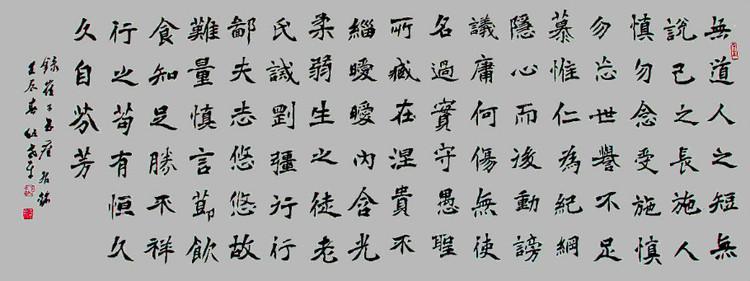 無道人之短無
說己之長施人
慎勿念受施慎
勿忘世譽不足
慕惟仁為紀綱
隱心而後動謗
議庸何傷無使
名過實守愚聖
所臧在涅貴不
緇曖曖內含光
柔弱生之徒老
氏誡剛彊行行
鄙夫志悠悠故
難量慎言節飲
食知足勝不祥
行之苟有恒久
久自芬芳
錄崔子玉座右銘
壬辰春